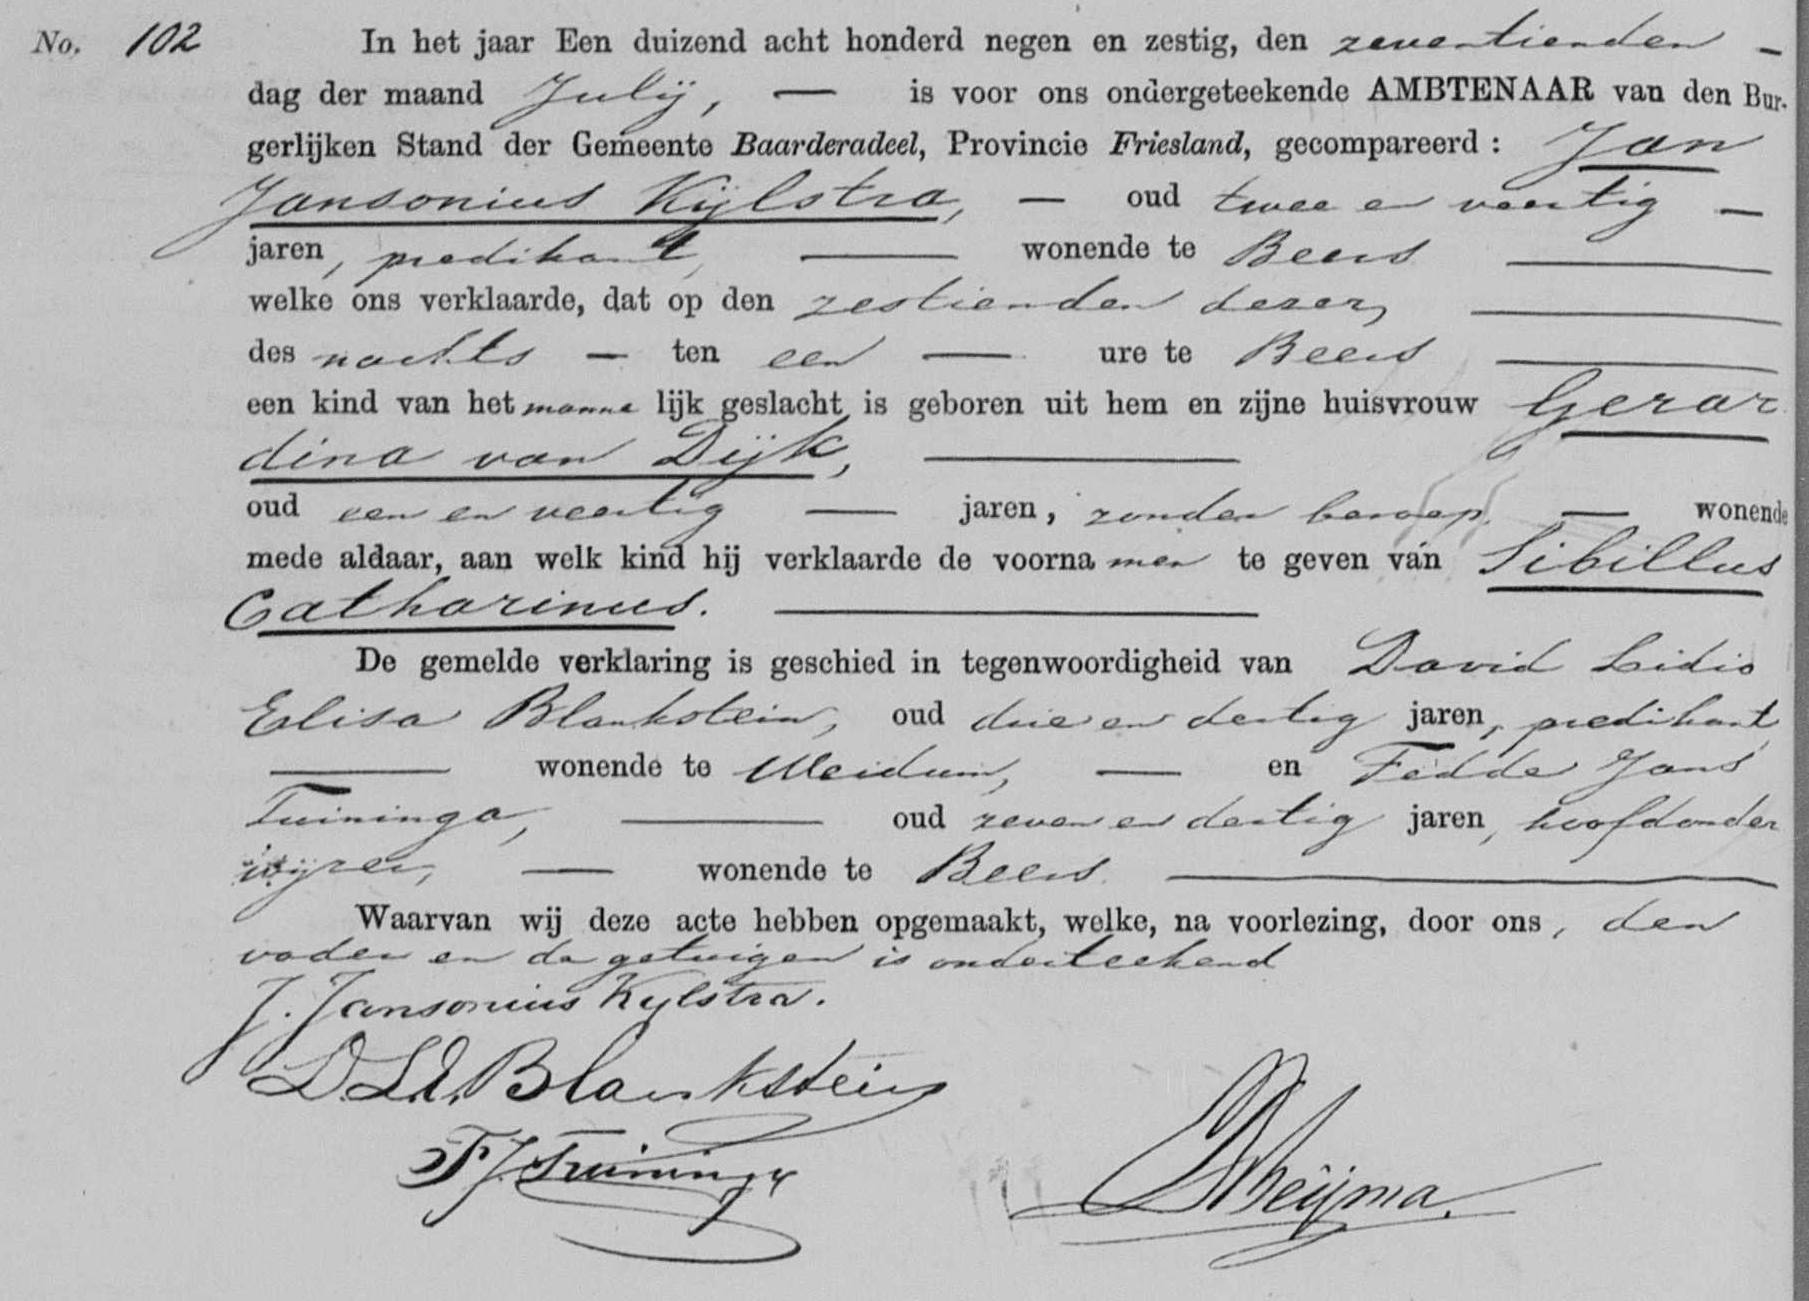 No. 102 In het jaar Een duizend acht honderd negen en zestig, den zeventienden —
dag der maand Julij, — is voor ons ondergeteekende AMBTENAAR van den Bur-
gerlijken Stand der Gemeente Baarderadeel, Provincie Friesland, gecompareerd: Jan
Jansonius Kijlstra, — oud twee en veertig —
jaren, predikant, — wonende te Beers —
welke ons verklaarde, dat op den zestienden dezer, —
des nachts — ten een — ure te Beers —
een kind van het manne lijk geslacht is geboren uit hem en zijne huisvrouw Gerar
dina van Dijk, —
oud een en veertig — jaren, zonder beroep, — wonende
mede aldaar, aan welk kind hij verklaarde de voorna men te geven van Sibillus
Catharinus. —
De gemelde verklaring is geschied in tegenwoordigheid van David Lidio
Elisa Blankstein, oud drie en dertig jaren, predikant,
— wonende te Weidum, — en Fedde Jans
Tuininga, — oud zeven en dertig jaren, hoofdonder
wijzer, — wonende te Beers. —
Waarvan wij deze acte hebben opgemaakt, welke, na voorlezing, door ons, den
vader en de getuigen is onderteekend
J. Jansonius Kylstra.
D. L. E. Blankstein
F J Tuininga